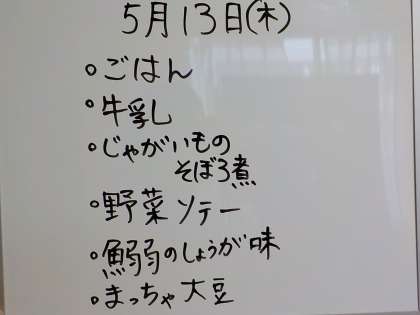 5月13日(木)
○ごはん
○牛乳
○じゃがいもの
そぼろ煮
○野菜ソテー
○鰯のしょうが味
○まっちゃ大豆